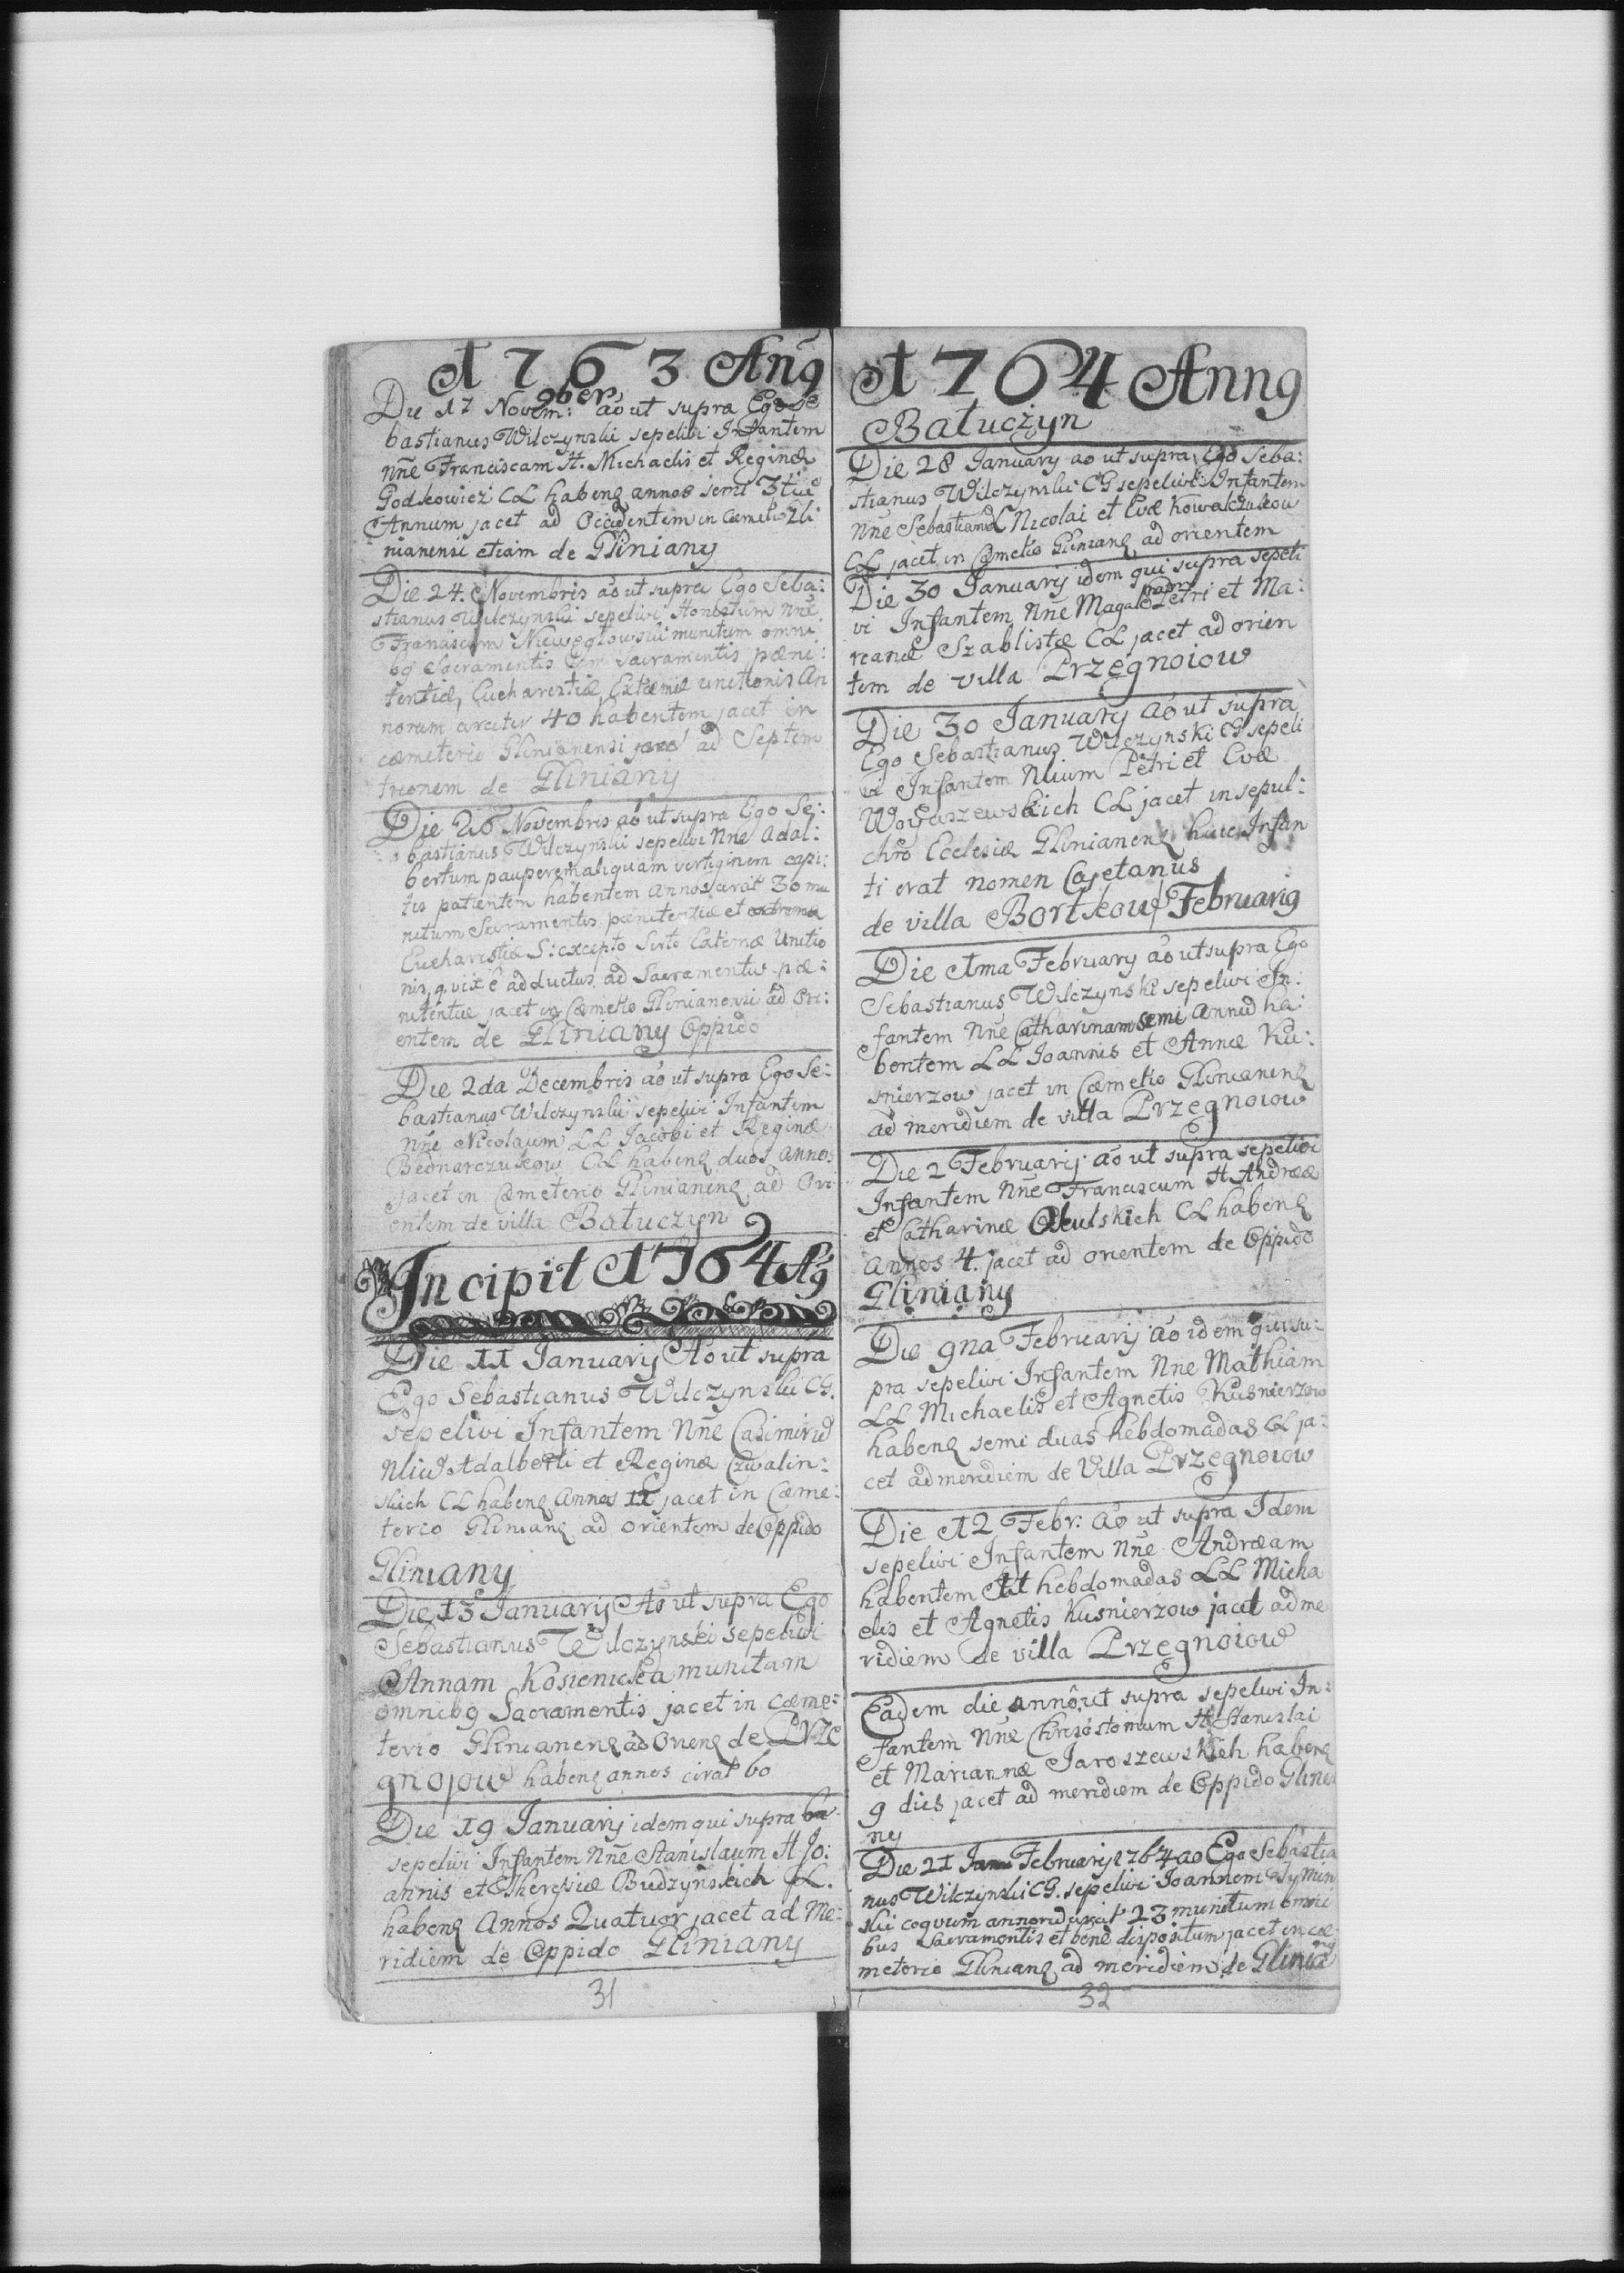 1763 Anng
9ber
Die 17 Novem: ao ut supra Ego Se
bastianus Wilczynski sepelivi Infantem
nne Franciscam H. Michaelis et Reginæ
Godkowicz CL habeng annos semi 3tiu
Annum jacet ad Occidentem in Cæmeto Gli
nianensi etiam de Gliniany
Die 24. Novembris ao ut supra Ego Seba:
stianus Wilczynski sepelivi Honestum nne
Franciscum Niewęgłowski munitum omni
bg Sacramentis Sacramentis pæni:
tentiæ, Eucharistiæ, Extremæ unctionis An
norum circiter 40 habentem jacet in
cæmeterio Glinianensi ad Septem
trionem de Gliniany
Die 26 Novembris ao ut supra Ego Se:
bastianus Wilczynski sepelivi Nne Adal:
bertum pauperem aliquam vertiginem capi:
tis patientem habentem annos circit 30 mu
nitum Sacramentis pænitentiæ et
Eucharistiæ S: excepto Extremæ Unctio
nis, adductus ad Sacramentu pæ:
nitentiæ jacet in Cæmeto Glinianensi ad Ori:
entem de Gliniany Oppido
Die 2da Decembris ao ut supra Ego Se:
bastianus Wilczynski sepelivi Infantem
Nne Nicolaum LL Jacobi et Reginæ
Bednarczukow CL habeng duos annos
jacet in Cæmeterio Glinianeng ad Ori
entem de villa Batuczyn
Incipit 1764 Ag
Die 11 January Ao ut supra
Ego Sebastianus Wilczynski CG.
sepelivi Infantem Nne Casimirũ
Nliũ Adalberti et Reginæ Czwalin:
skich CL habeng Annos II jacet in Cæme:
terio Gliniang ad orientem de Oppido
Gliniany
Die 13 January Ao ut supra Ego
Sebastianus Wilczynski sepelivi
Annam Kosienicka munitam
omnibg Sacramentis jacet in cæme:
terio Glinianeng ad Orieng de Prze
gnojow habeng annos circit 60
Die 19 January idem qui supra
sepelivi Infantem Nne Stanislaum H Jo:
annis et Theresiæ Budzynskich CL.
habeng Annos Quatuor jacet ad Me:
ridiem de Oppido Gliniany
31
1764 Anng
Batuczyn
Die 28 January ao ut supra Ego Seba:
stianus Wilczynski CG sepelivi Infantem
nne Sebastianũ Nicolai et Evæ Kowalczukow
CL jacet in Cæmetio Gliniang ad orientem
Die 30 January idem qui supra sepeli
vi Infantem Nne Magale Petri et Ma:
nam
rianæ Szablistæ CL jacet ad orien
tem de villa Przegnoiow
Die 30 January ao ut supra
Ego Sebastianus Wilczynski CG sepeli
vi Infantem Nlium Petri et Evæ
Woyaszewskich CL jacet in sepul:
chro Ecclesiæ Glinianeng huic Infan
ti erat nomen Cajetanus
de villa Bortkow Februarig
Die 1ma February ao ut supra Ego
Sebastianus Wilczynski sepelivi In:
fantem Nne Catharinam semi annũ ha:
bentem LL Joannis et Annæ Ku:
snierzow jacet in Cæmetio Glinianeng
ad meridiem de villa Przegnoiow
Die 2 February ao ut supra sepelivi
Infantem Nne Franciscum H Andreæ
et Catharinæ Okulskich CL habeng
annos 4. jacet ad orientem de Oppido
Gliniany
Die 9na February ao idem qui su:
pra sepelivi Infantem Nne Mathiam
LL Michaelis et Agnetis Kusnierzow
habeng semi duas hebdomadas CL ja:
cet ad meridiem de Villa Przegnoiow
Die 12 Febr: ao ut supra Idem
sepelivi Infantem nne Andræam
habentem II hebdomadas LL Micha
elis et Agnetis Kusnierzow jacet ad me
ridiem de villa Przegnoiow
Eadem die anno ut supra sepelivi In:
fantem Nne Chrisostomum H Stanislai
et Mariannæ Jaroszewskich habeng
9 dies jacet ad meridiem de Oppido Glinia
ny
Die 21 February 1764 ao Ego Sebastia
nus Wilczynski CG. sepelivi Joannem Symin
ski coqvum annorũ circit 23 munitum omni
bus Sacramentis et bene dispositum jacet in cæ
meterio Gliniang ad meridiem de Glinia
ny
32